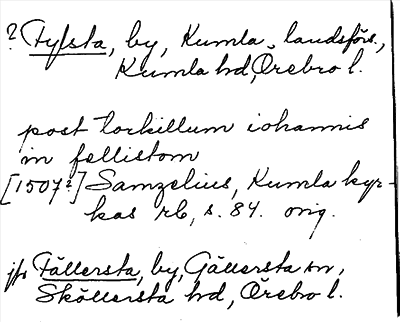 ? Fylsta, by, Kumla landsförs.,
Kumla hd, Örebro l.
post torkillum iohannis
in fellistom
[1507?] Samzelius, Kumla kyr-
kas rb, s. 84. orig.
jfr Fällersta, by, Gällersta sn,
Sköllersta hd, Örebro l.